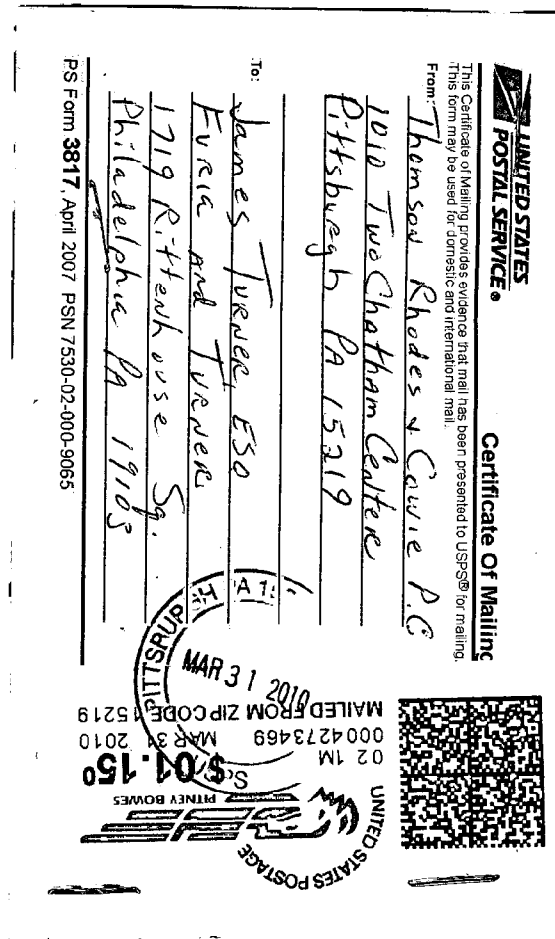 UNITED STATES
POSTAL SERVICE®
Certificate Of Mailing
This Certificate of Mailing provides evidence that mail has been presented to USPS® for mailing.
This form may be used for domestic and international mail.
From: Thomson Rhodes & Cowie P.C
1010 Two Chatham Center
Pittsburgh PA 15219
To: James Turner, ESQ
Furia and Turner
1719 Rittenhouse Sq.
Philadelphia PA 19103
PS Form 3817, April 2007 PSN 7530-02-000-9065
MAR 31 2010
UNITED STATES POSTAGE
PITNEY BOWES
02 1M
$ 01.15⁰
0004273469 MAR 31 2010
MAILED FROM ZIP CODE 15219